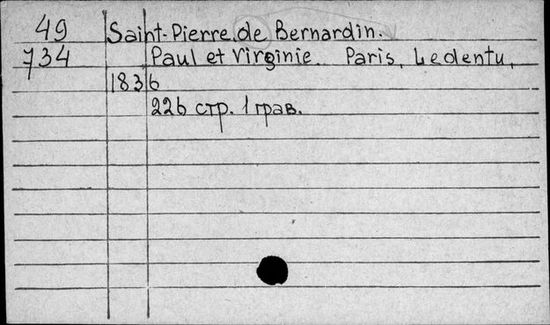 49 Saint-Pierre, de Bernardin.
734 Paul et Virginie. Paris, Ledentu,
1836
226 стр. 1 грав.